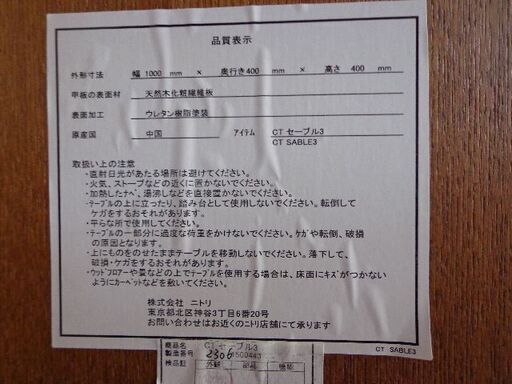 品質表示
外形寸法 幅 1000 mm × 奥行き400 mm × 高さ 400 mm
甲板の表面材 天然木化粧繊維板
表面加工 ウレタン樹脂塗装
原産国 中国 アイテム CT セーブル3
CT SABLE3
取扱い上の注意
・直射日光があたる場所は避けてください。
・火気、ストーブなどの近くに置かないでください。
・加熱したナベ、湯沸しなどを直接置かないでください。
・テーブルの上に立ったり、踏み台として使用しないでください。転倒して
ケガをするおそれがあります。
・平らな所で使用してください。
・テーブルの一部分に過度な荷重をかけないでください。ケガや転倒、破損
の原因となります。
・上にものをのせたままテーブルを移動しないでください。落下して、
破損・ケガをするおそれがあります。
・ウッドフロアーや畳などの上でテーブルを使用する場合は、床面にキズがつかない
ようにカーペットなどを敷いてください。
株式会社 ニトリ
東京都北区神谷3丁目6番20号
お問い合わせはお近くのニトリ店舗にて承ります
CT SABLE3
商品名 CT セーブル3
製造番号 2306 1500443
検品証 外観 部品 機能